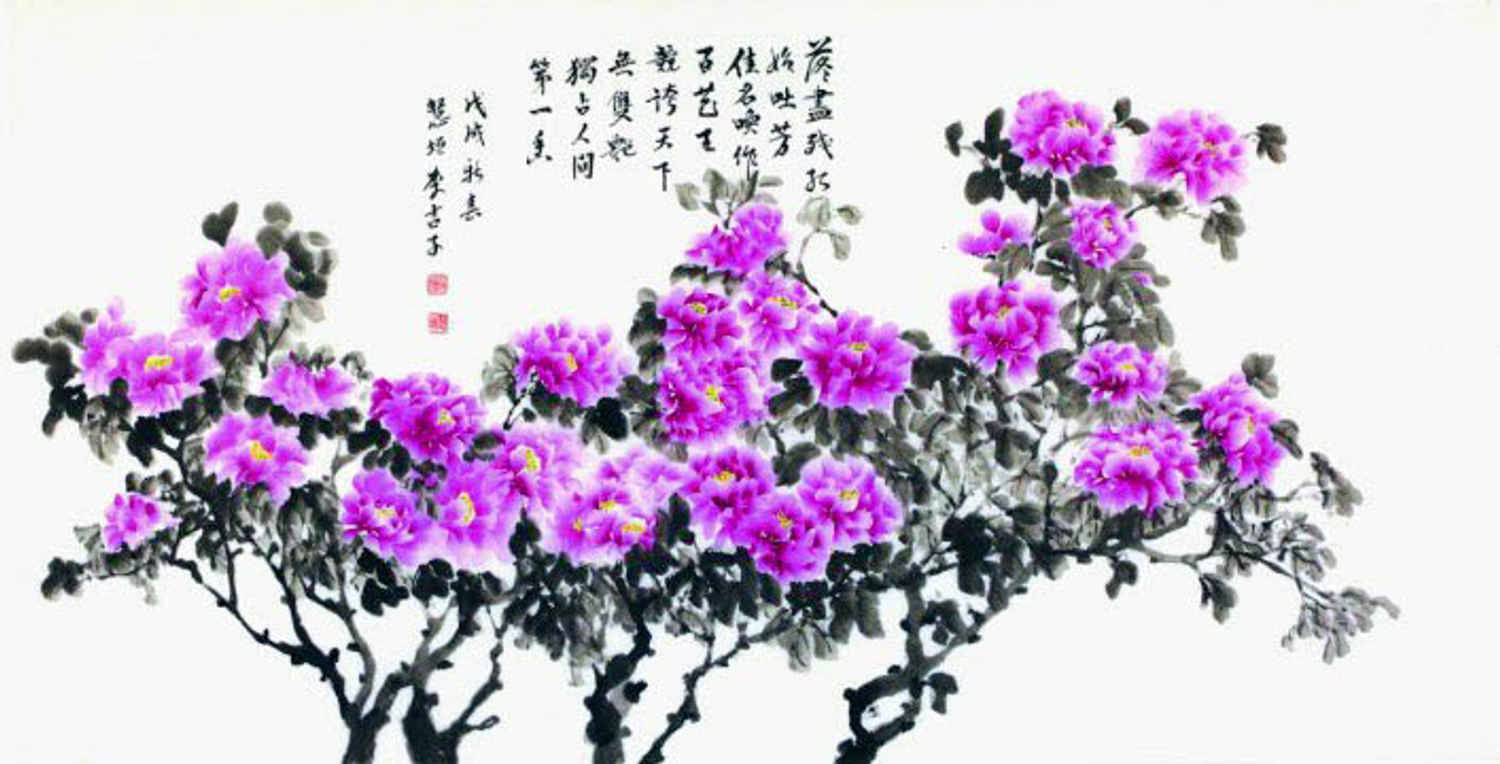 落盡殘紅
始吐芳
佳名喚作
百花王
競誇天下
無雙艶
獨占人間
第一香
戊戌新春
慧 李吉子